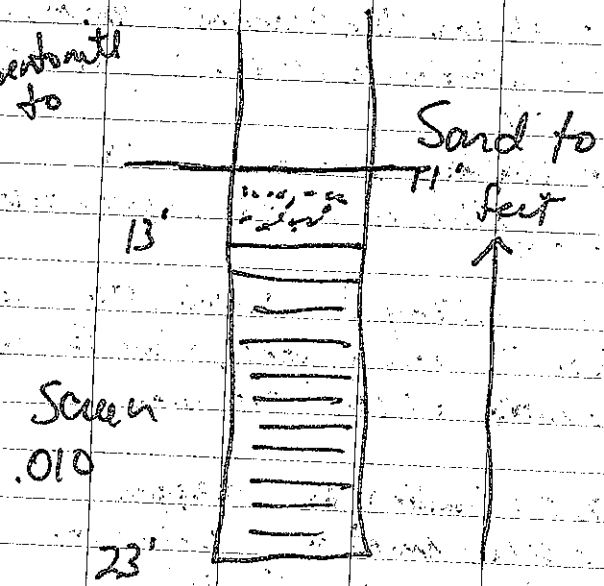 to
Sand to
11'
feet
13'
Screen
.010
23'